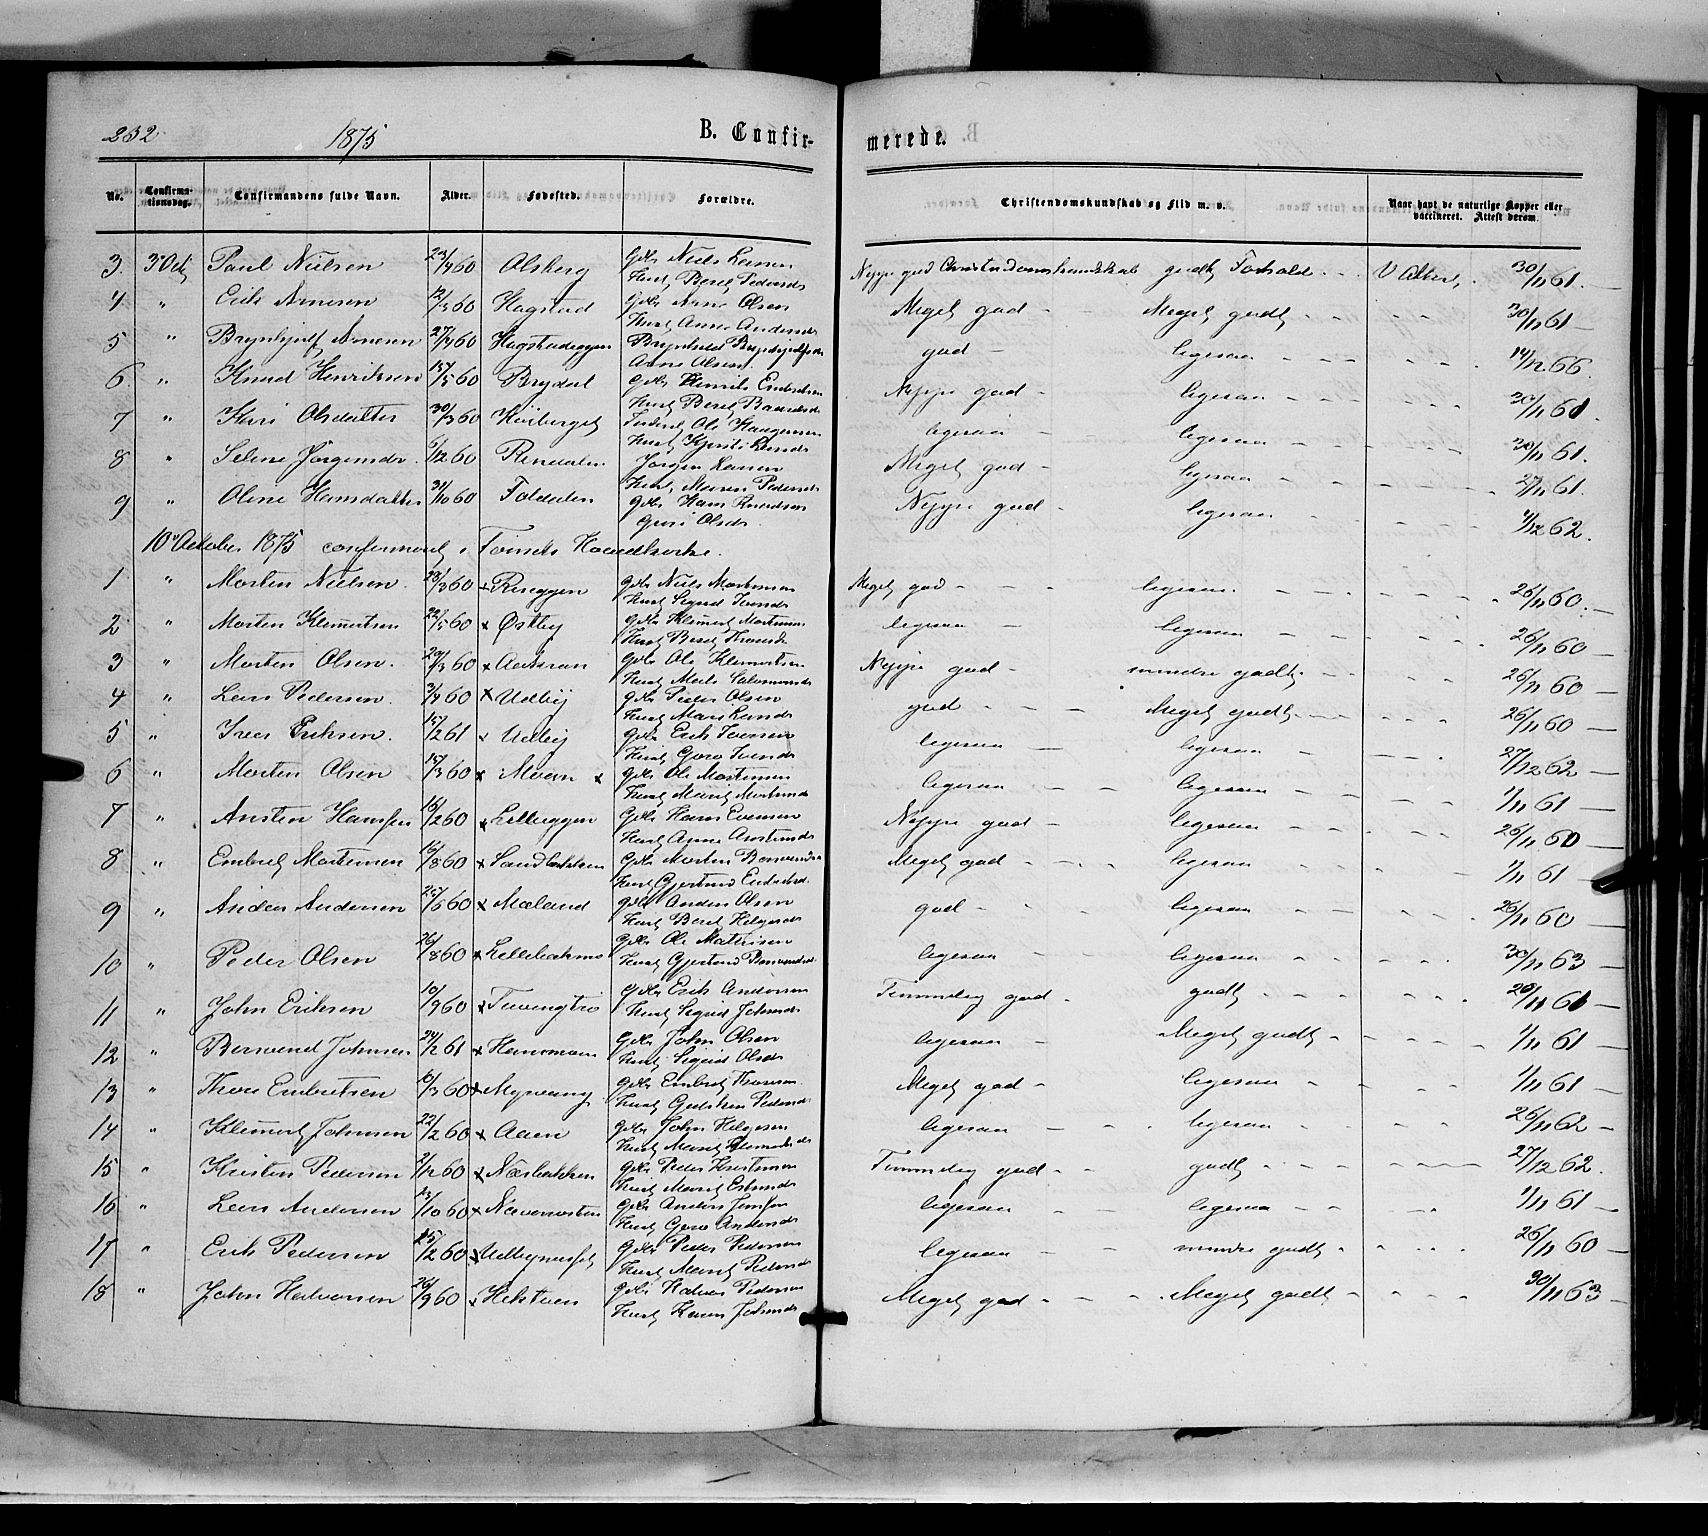 232 1875 B. Confir-
merede.
No. Confirmationsdag. Confirmandens fulde Navn. Alder. Fødested. Forældre. Christendomskundskab og Flid m. v. Naar havt de naturlige Kopper eller vaccineret. Attest derom.
3. 3 Oct. Paul Nielsen 23/4 60 Alsberg Gdb. Niels Larsen Hust. Beret Pedersdr Neppe god Christendomskundskab godt Forhold - - V. Attest, 30/11 61.
4 " Erik Arnesen 12/5 60 Hagstad Gdb. Arne Olsen Hust. Anne Andersdr Meget god - Meget godt - - 30/11 61
5 " Brynhjulf Arnesen 27/4 60 Hagstadeggen Brynhild Brynhjulfsdr Arne Olsen god - ligesaa - - 14/12 66.
6. " Knud Henriksen 15/5 60 Brydal Gdb. Henrik Endresen Hust. Beret Neppe god - ligesaa - - 30/11 61.
7 " Kari Olsdatter 30/3 60 Ole Haagensen Hust. Kjersti Larsdr ligesaa ligesaa - - 30/11 61.
8 " Seline Jørgensdr. 6/12 60 Rendalen Jørgen Larsen Hust. Maren Pedersdr Meget god - ligesaa - - 27/11 61.
9 " Oline Hansdatter 31/10 60 Foldalen Gdb. Hans Knudsen Guri Olsdr. Neppe god - ligesaa - - 4/12 62.
10 October 1875 confirmeret i Tønsets Hovedkirke.
1 " Morten Nielsen. 23/3 60 Ruseggen Gdb. Niels Mortensen Hust. Sigrid Iversdr Meget god - - ligesaa - - 26/11 60.
2 " Morten Klemetsen 22/5 60 x Østby Gdb. Klemet Mortensen Hust. Beret Thoresdr ligesaa - ligesaa - - 26/11 60
3 " Morten Olsen. 20/3 60 x Aasran Gdb. Ole Klemetsen Hust. Salomonsdr Neppe god - mindre godt - - 26/11 60
4 " Lars Pedersen. 2/4 60 x Udby Gdb. Peder Olsen Hust. Mari Larsdr god - - Meget godt - - 26/11 60
5 " Iver Eriksen. 15/2 61 x Udby Gdb. Erik Iversen Hust. Goro Iversdr ligesaa - ligesaa - - 27/12 62
6 " Morten Olsen 15/3 60 x Moen x Gdb. Ole Mortensen Hust. Marit Mortensdr ligesaa - - ligesaa - - 1/11 61
7 " Austen Hansen 16/2 60 x Lilleeggen Gdb. Hans Evensen Hust. Anne Austensdr Neppe god - ligesaa - - 26/11 60
8 " Embret Mortensen 16/8 60 x Sandbakken Gdb. Morten Hust. Gjertrud Embretsdr. Meget god - - ligesaa - - 1/11 61
9 " Anders Andersen 25/6 60 x Mæland Gdb. Anders Olsen Hust. Beret Helgesdr god - - ligesaa - - 26/11 60
10 " Peder Olsen 26/8 60 x Lillebakmo Gdb. Ole Mathisen Hust. Gjertrud ligesaa - ligesaa - - 30/11 63
11 " John Eriksen 10/9 60 x Gdb. Erik Andersen Hust. Sigrid Johnsdr Temmelig god - godt - - 26/11 61
12 " Bersvend Johnsen 24/2 61 x Hansmoen Gdb. John Olsen Hust. Sigrid Olsdr ligesaa - Meget godt - - 1/11 61
13 " Thore Embretsen 10/3 60 x Myreeng Gdb. Embret Thoresen Hust. Pedersdr Meget god - ligesaa - - 1/11 61
14 " Klemet Johnsen 22/2 60 x Aaen Gdb. John Helgesen Hust. Marit Klemetsdr ligesaa - - ligesaa - - 26/11 62
15 " Kristen Pedersen 2/12 60 x Næsbakken Gdb. Peder Kristensen Hust. Marit Estensdr Temmelig god - - godt - - 27/12 62.
16 " Lars Andersen 23/10 60 x Gdb. Anders Jonsen Hust. Goro Andersdr ligesaa - ligesaa - - 1/11 61
17 " Erik Pedersen 25/2 60 x Gdb. Peder Pedersen Hust. Marit Pedersdr ligesaa - - mindre godt - - 26/11 60
18 " John Halvorsen 26/9 60 x Hektoen Gdb. Halvor Pedersen Hust. Karen Johnsdr Meget god - - - Meget godt - - 30/11 63